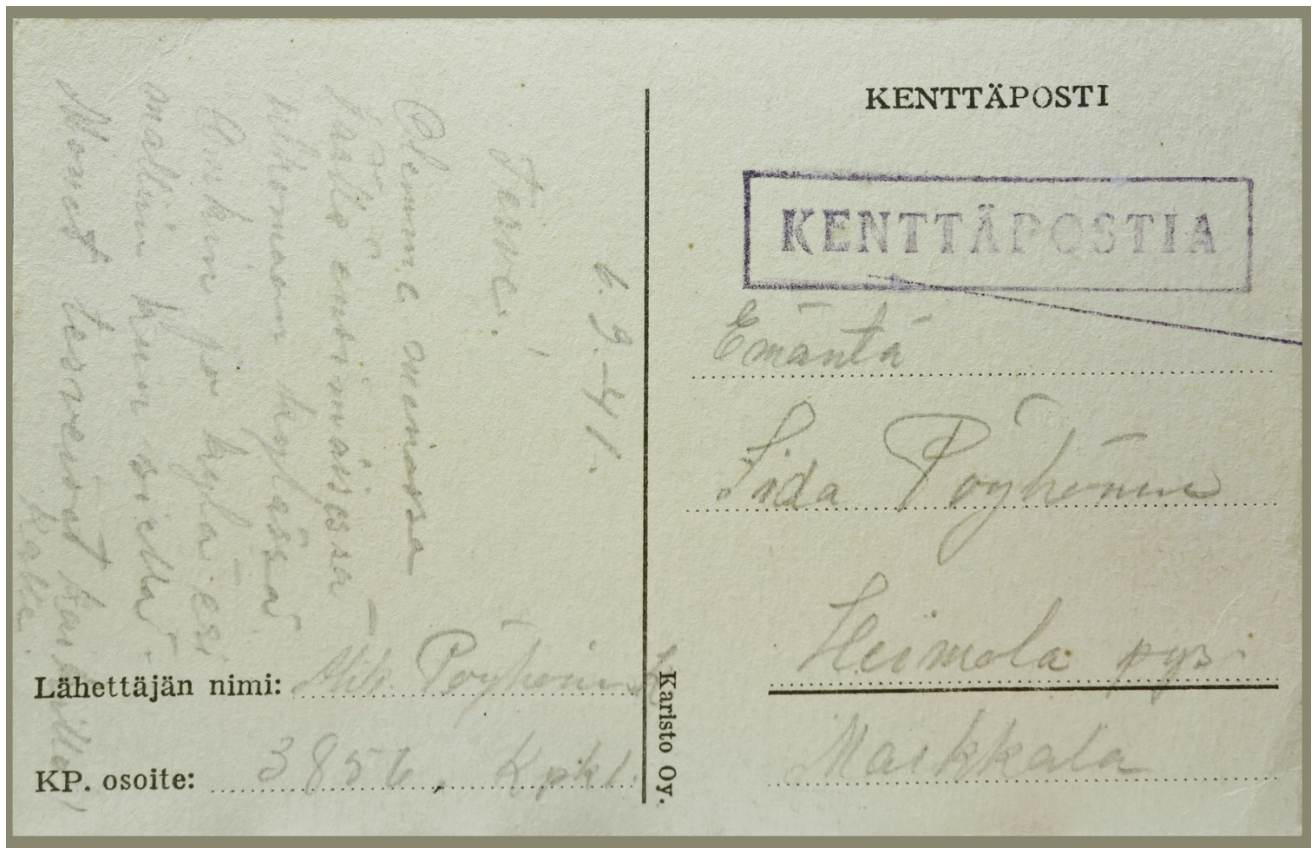 KENTTÄPOSTI
KENTTÄPOSTIA
Emäntä
Iida Pöyhönen
Heimola pys.
Maskkala
Karisto Oy.
6.9.-41.
Terve.!
Olemme menossa
ensimäisessä
kylässä
kun jo kylä esi
kun siellä
Monet terveiset kaikille!
Kalle.
Lähettäjän nimi: Pöyhönen K
KP. osoite: 3856, Kpkl.